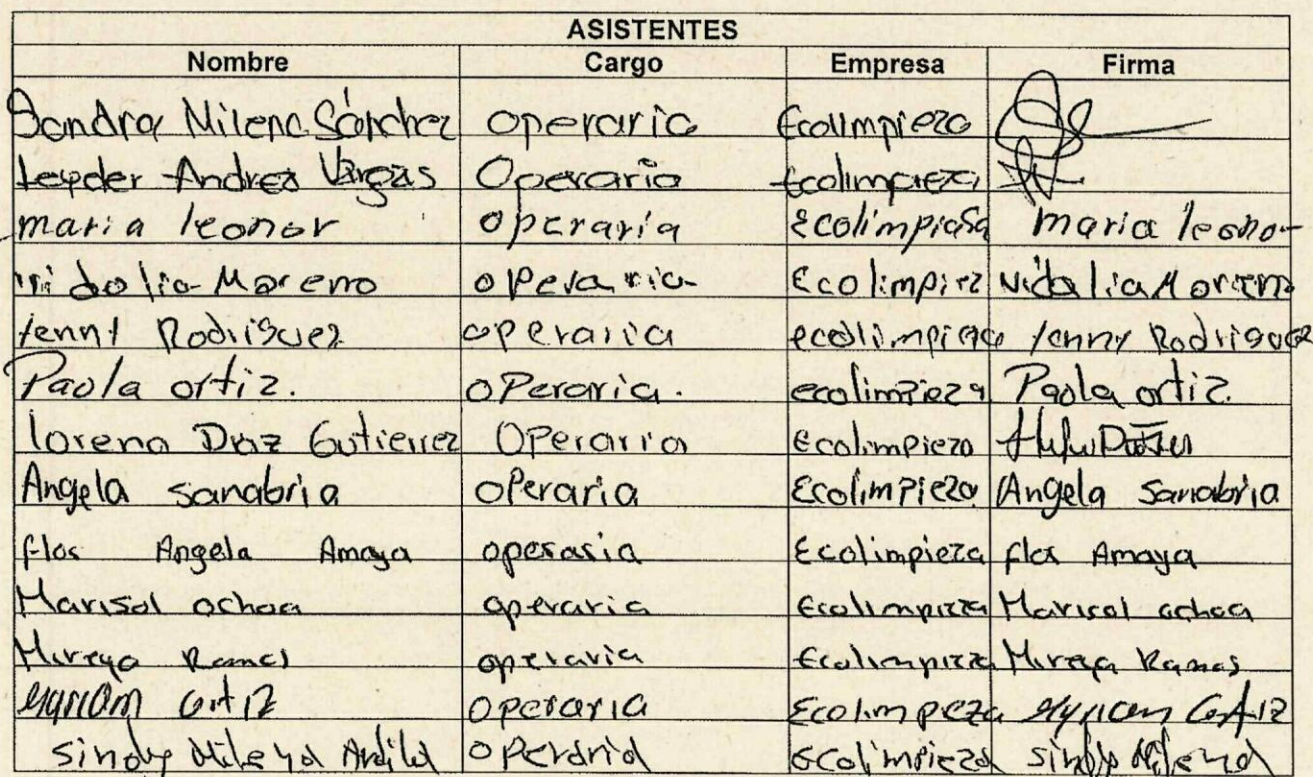 ASISTENTES
Nombre Cargo Empresa Firma
Sandra Milena Sánchez operaria Ecolimpieza
Leyder Andres Vargas Operario Ecolimpieza
maria leonor operaria ecolimpiesa maria leonor
nidolia Moreno operaria Ecolimpiez Nidalia Moreno
Yenny Rodriguez operaria ecolimpieza Yenny Rodriguez
Paola ortiz. operaria. ecolimpieza Paola ortiz.
lorena Diaz Gutierrez Operaria Ecolimpieza
Angela sanabria operaria Ecolimpieza Angela Sanabria
flor Angela Amaya operaria Ecolimpieza flor Amaya
Marisol ochoa operaria Ecolimpieza Marisol ochoa
Mireya Ramos operaria Ecolimpieza Mireya Ramos
Myriam Ortiz operaria Ecolimpeza Myriam Ortiz
sindy Milena Ardila operaria ecolimpieza sindy Milena